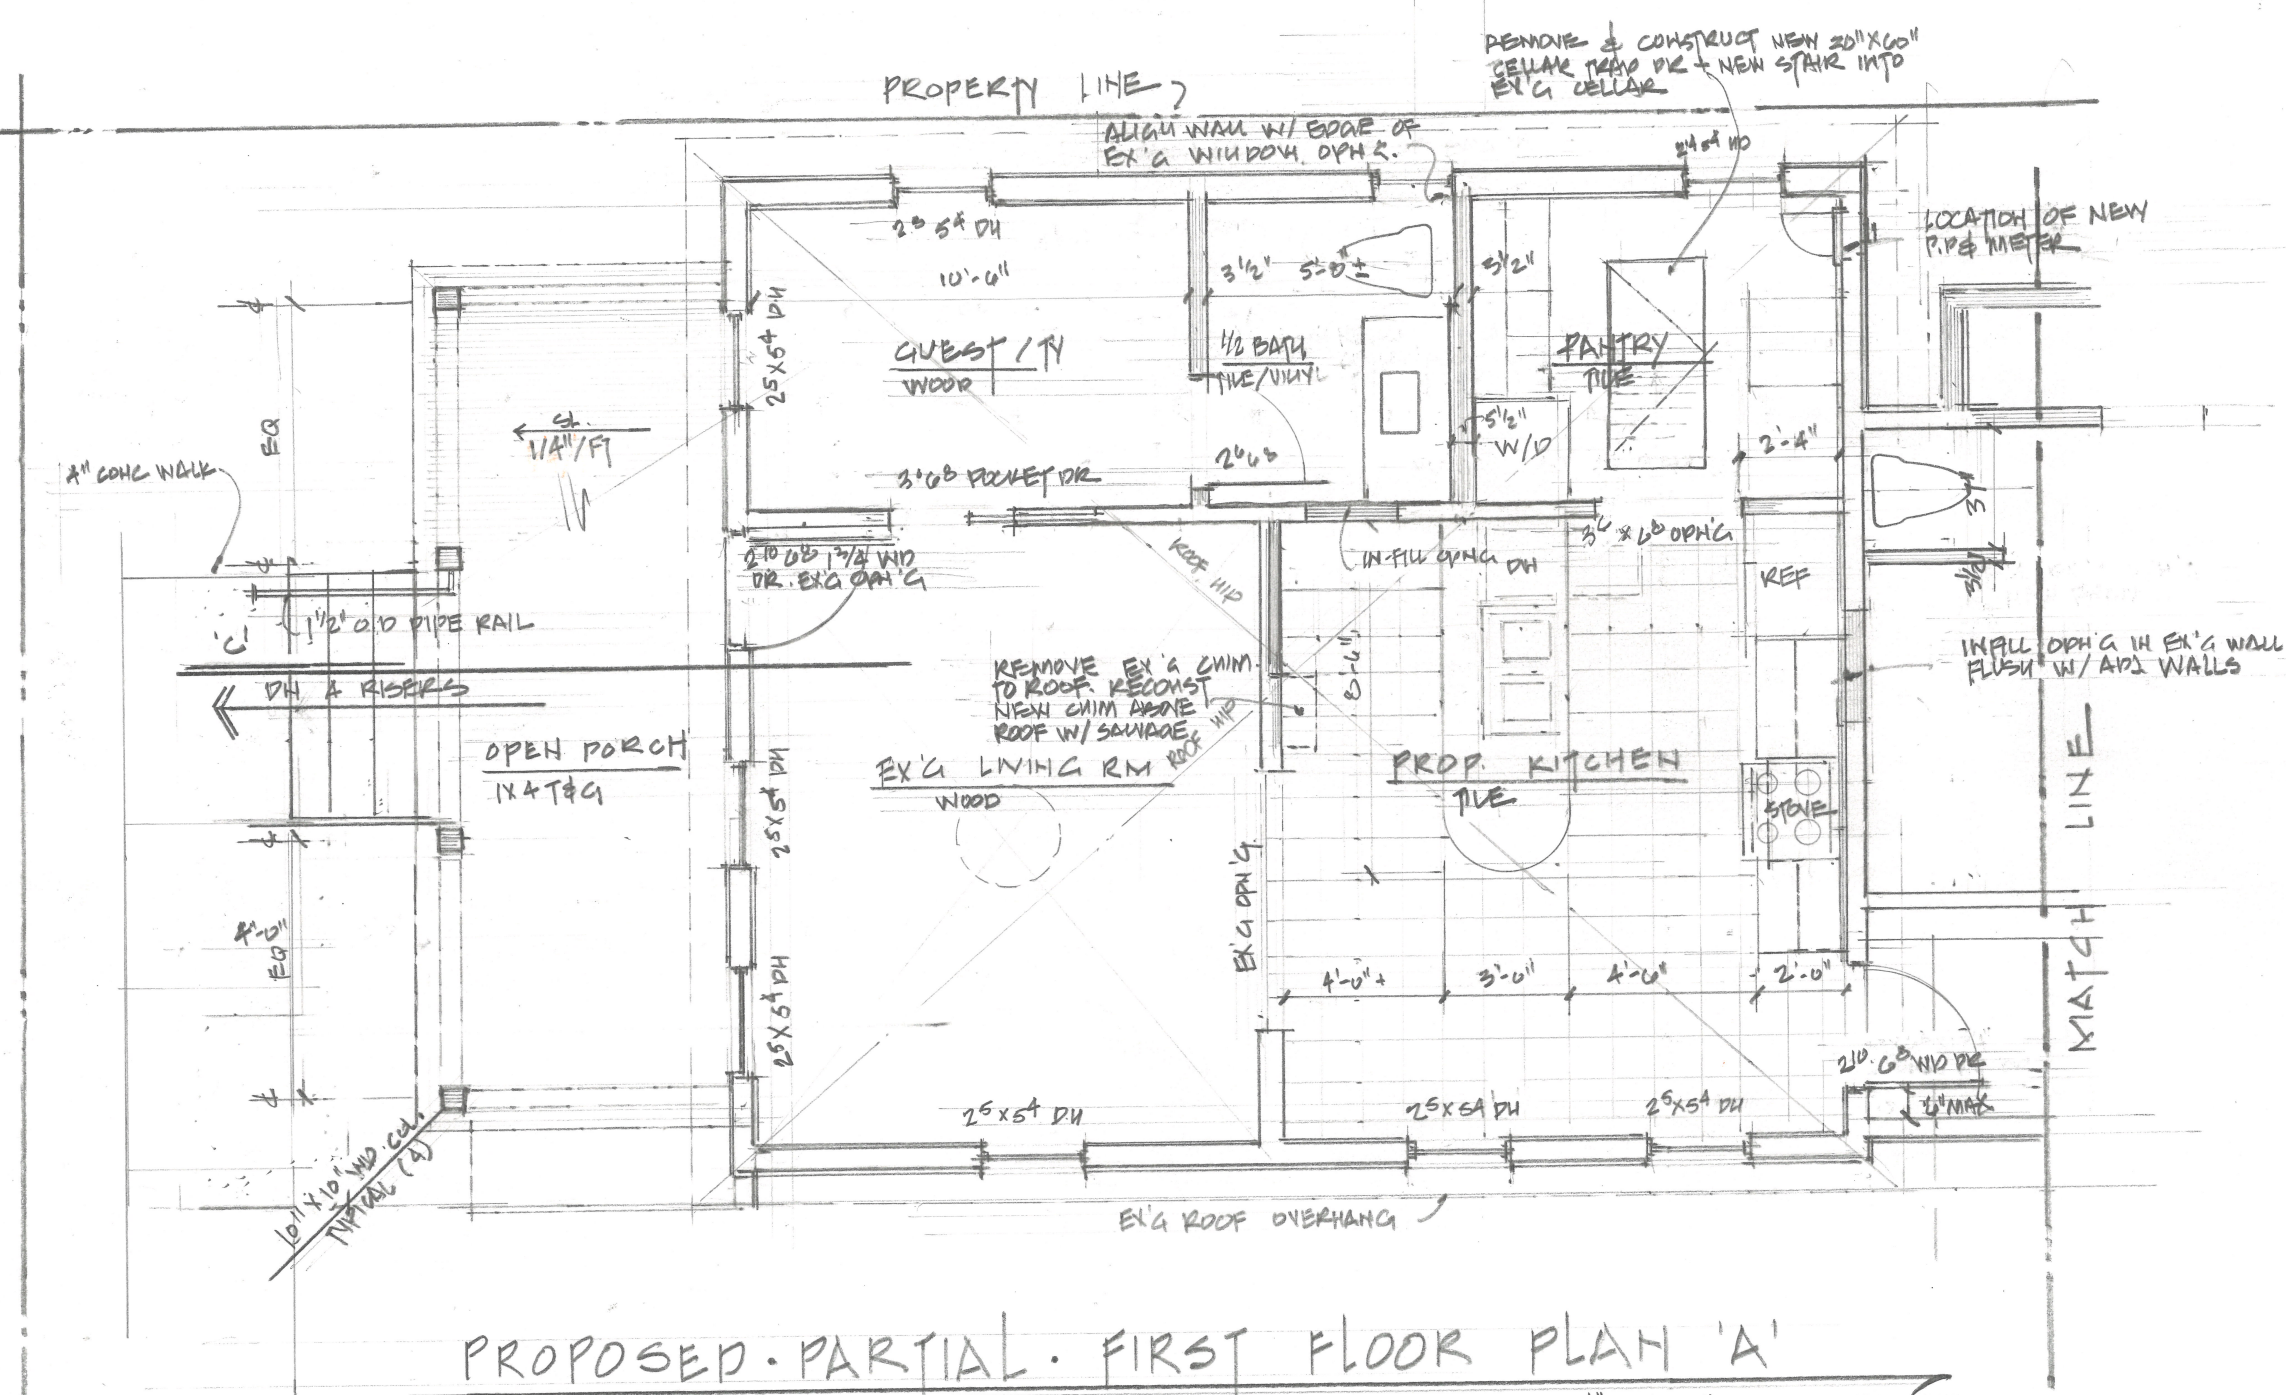 REMOVE & CONSTRUCT NEW 30"X60"
CELLAR TRAP DR + NEW STAIR INTO
EX'G CELLAR
PROPERTY LINE
ALIGN WALL W/ EDGE OF
EX'G WINDOW OPN'G.
LOCATION OF NEW
METER
2⁸ 5⁴ DH
10'-6"
3 1/2"
5'-8" ±
3 1/2"
2⁵X5⁴ DH
GUEST / TV
WOOD
1/2 BATH
TILE/VINYL
PANTRY
TILE
5 1/2"
W/D
2'-4"
EQ
SL.
1/4"/FT
4" CONC WALK
3⁰6⁸ POCKET DR
2⁶6⁸
2¹⁰ 6⁸ 1 3/4 WD
DR. EX'G OPN'G
ROOF HIP
IN-FILL OPNG
DH
3⁶ X 6⁸ OPN'G
REF
3 1/2"
1 1/2" O.D PIPE RAIL
'C'
DN 4 RISERS
REMOVE EX'G CHIM.
TO ROOF. RECONST
NEW CHIM ABOVE
ROOF W/ SALVAGE
ROOF HIP
8'-6"
INFILL OPN'G IN EX'G WALL
FLUSH W/ ADJ WALLS
OPEN PORCH
1X4 T&G
2⁵X5⁴ DH
EX'G LIVING RM
WOOD
PROP. KITCHEN
TILE
STOVE
MATCH LINE
EX'G OPN'G
4'-0"
EQ
2⁵X5⁴ DH
4'-0" +
3'-0"
4'-6"
2'-0"
2¹⁰ 6⁸ WD DR
6" MAX
2⁵X5⁴ DH
2⁵X5⁴ DH
2⁵X5⁴ DH
10"X10" WD. COL.
TYPICAL (4)
EX'G ROOF OVERHANG
PROPOSED · PARTIAL · FIRST FLOOR PLAN 'A'